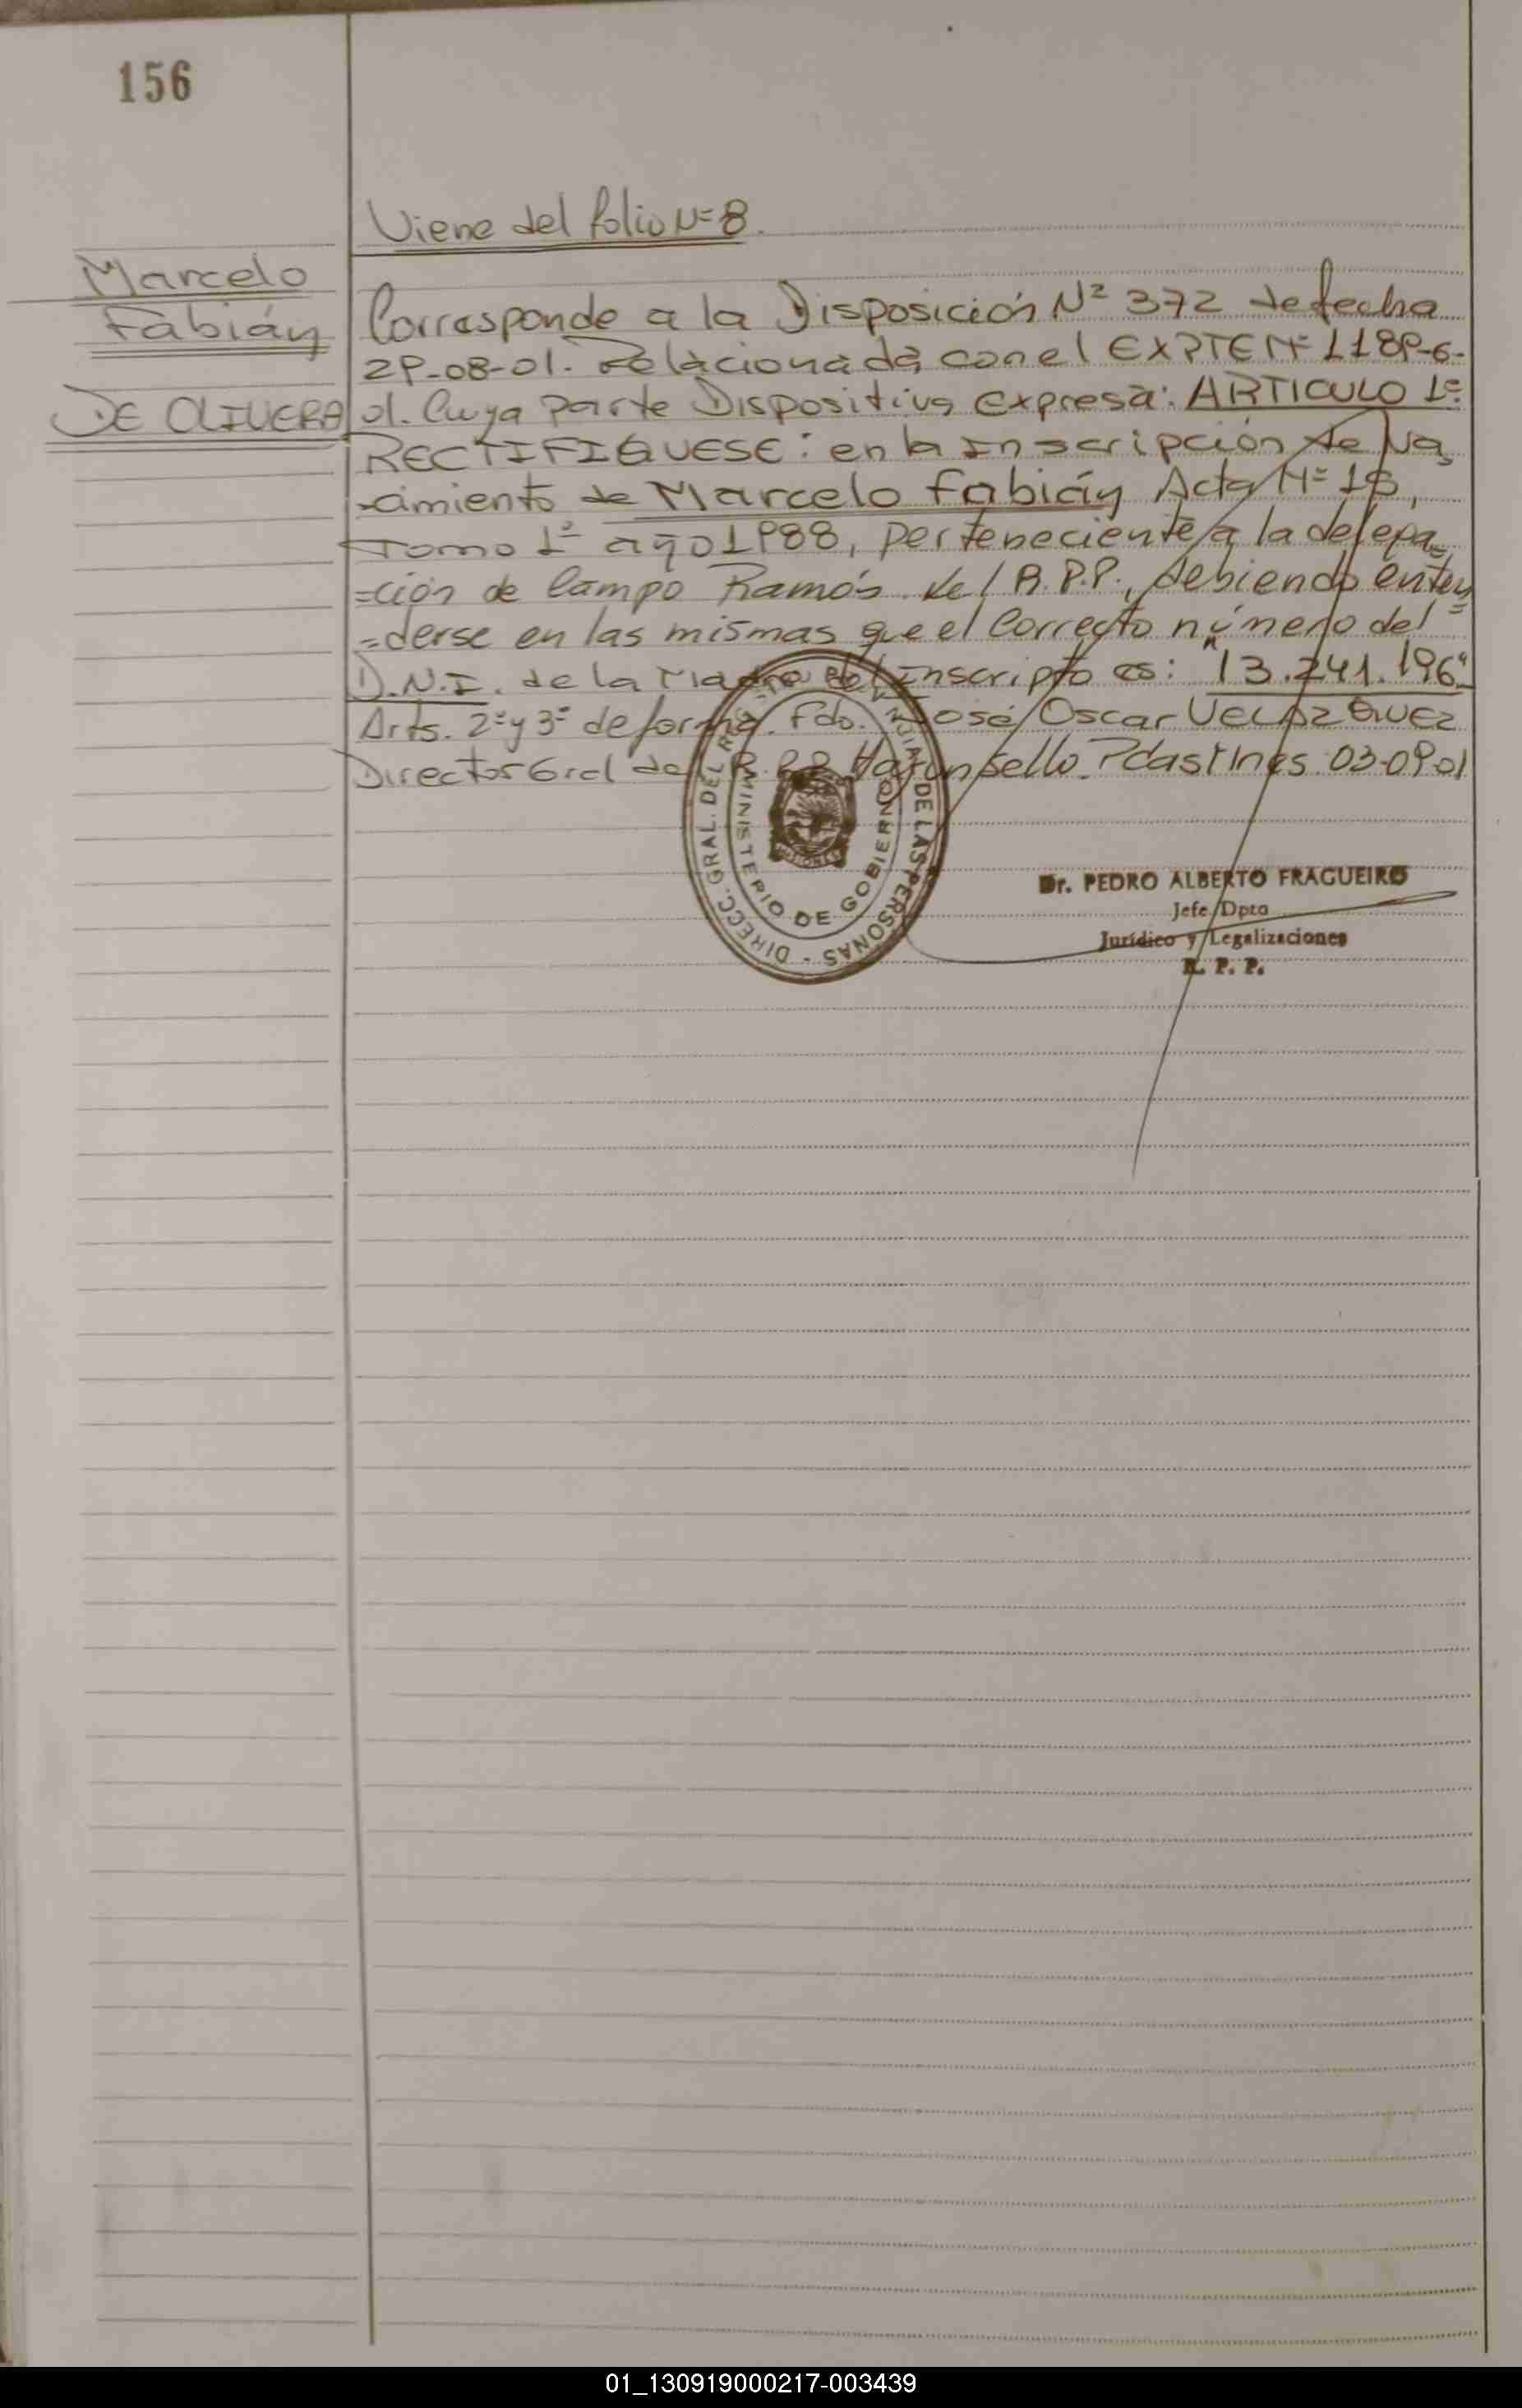 156
Viene del folio N=8.
Marcelo
Fabián
DE OLIVERA
Corresponde a la Disposición Nº 372 de fecha
29-08-01. Relacionada con el EXPTE Nº 1189-G-
01. Cuya parte Dispositiva expresa: ARTICULO 1º
RECTIFIQUESE: en la Inscripción de Na
cimiento de Marcelo Fabián Acta Nº 15,
Tomo 1º año 1988, perteneciente a la delega=
=ción de Campo Ramón del R.P.P., debiendo enten
=derse en las mismas que el Correcto número del
D.N.I. de la Madre del inscripto es: "13.241.196"
Arts. 2º y 3º de forma. Fdo. José Oscar VELAZQUEZ
Director Gral del R.P.P. Hay un sello. Pdas Mnes. 03-09-01
DIRECC. GRAL. DEL REG. DE LAS PERSONAS -
MINISTERIO DE GOBIERNO
MISIONES
Dr. PEDRO ALBERTO FRAGUEIRO
Jefe Dpto
Jurídico y Legalizaciones
R. P. P.
01_130919000217-003439